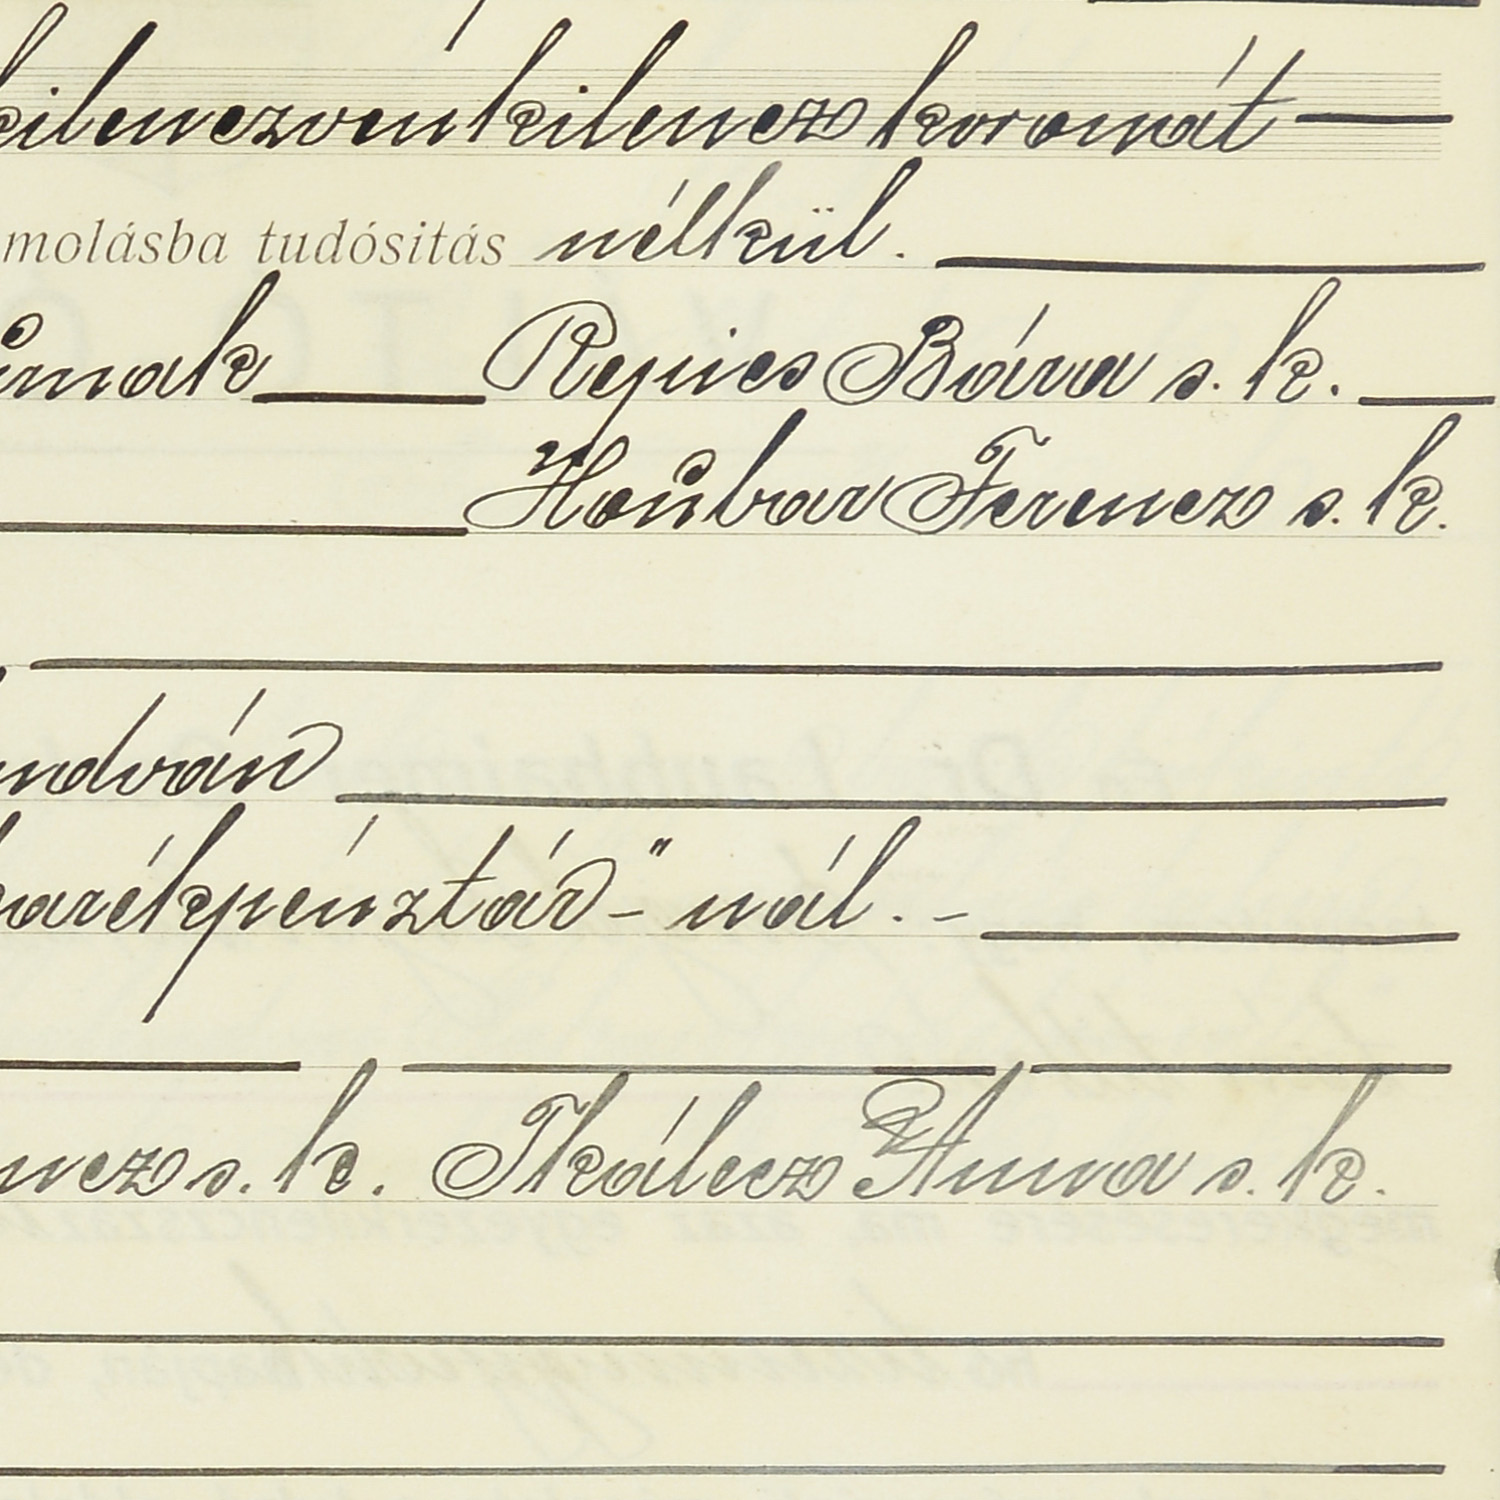 kilenczvenkilencz koronát
molásba tudósitás nélkül.
úrnak Repics Bára s. k.
Houbar Ferencz s. k.
ndván
karékpénztár-" nál. -
ncz s. k. Tkálecz Anna s. k.